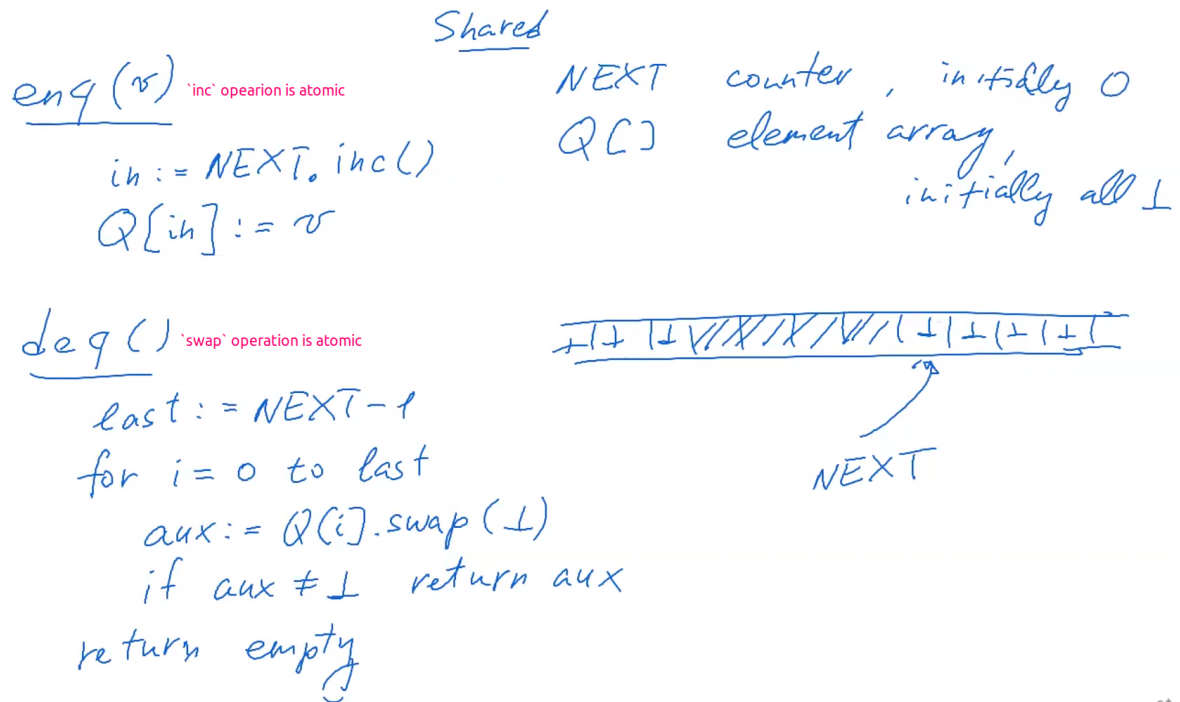 Shared
enq(v) `inc` opearion is atomic
in := NEXT.inc()
Q[in] := v
NEXT counter, initially 0
Q[] element array,
initially all ⊥
deq() `swap` operation is atomic
last := NEXT-1
for i = 0 to last
aux := Q[i].swap(⊥)
if aux ≠ ⊥ return aux
return empty
⊥ ⊥ ⊥ ⊥ ⊥ ⊥ ⊥
NEXT